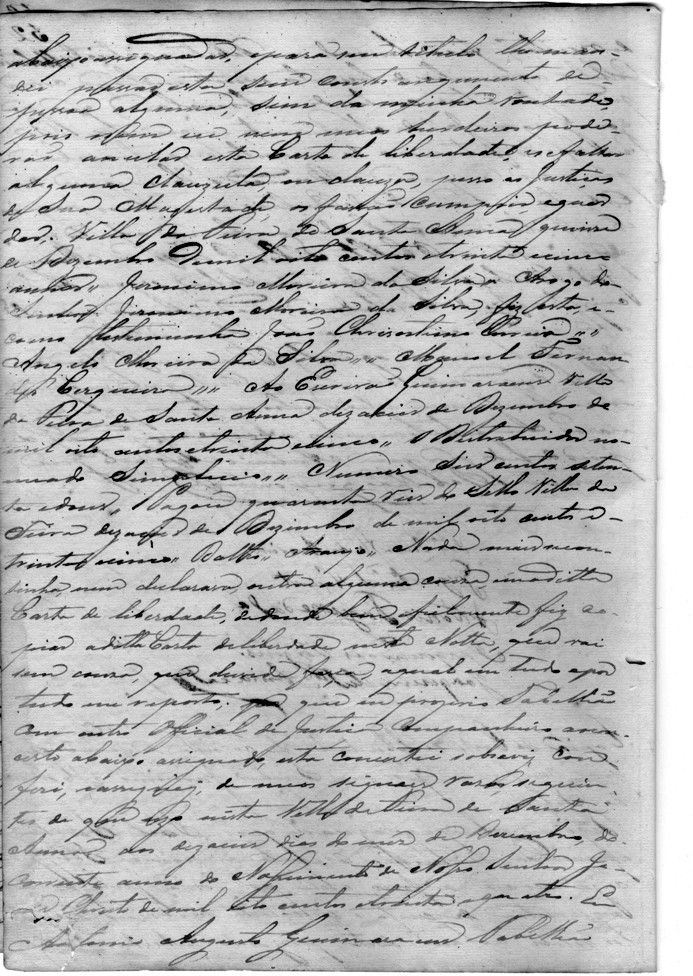 abaixo assignadas, e para seu titulo lhe man-
dei passar esta sem constrangimento de
pessoa alguma, sim da minha vontade
pois nem eu nem meus herdeiros pode-
rão anular esta Carta de liberdade, e se faltar
alguma Clauzula, ou clauza, pesso as Justiças
de Sua Magestade, os fação cumprir, e guar
dar. Villa da Feira de Santa Anna, quinze
de Dezembro de mil oito centos e trinta e cinco
annos,, Jeronimo Moreira da Silva,, Arogo do
Senhor Jeronimo Moreira da Silva, fiz esta, e
como testemunha João Chrisostimo
Angelo Moreira da Silva,, Manoel Fernan
des Cerqueira,, Ao Escrivão Guimaraens Villa
da Feira de Santa Anna dezaceis de Dezembro de
mil oito centos e trinta e cinco,, O Destribuidor no-
meado Simplicio,, Numero centos seten-
ta e dous,, Pagou quarenta reis do Sello Villa da
Feira dezaceis de Dezembro de mil oito centos e
trinta e cinco,, Araujo,, Nada mais se con-
tinha, nem declarava, outra alguma couza em a ditta
Carta de liberdade, de donde bem e fielmente fiz co-
piar a ditta Carta de liberdade nesta Notta, que vai
sem couza, que duvida faça, a qual em tudo e por
tudo me reporto, que eu proprio Tabelião
com outro Official de Justiça Companheiro ao con-
certo abaixo assignado, esta concertei sobscrevi, con
feri, e assignei, de meos signaes razos seguin-
tes de que uso nesta Villa da Feira de Santa
Anna, aos dezaceis dias do mez de Dezembro, do
corrente anno do Nascimento de Nosso Senhor Je-
sus Christo de mil oito centos e trinta e quatro. Eu
Antonio Augusto Guimaraens Tabelião